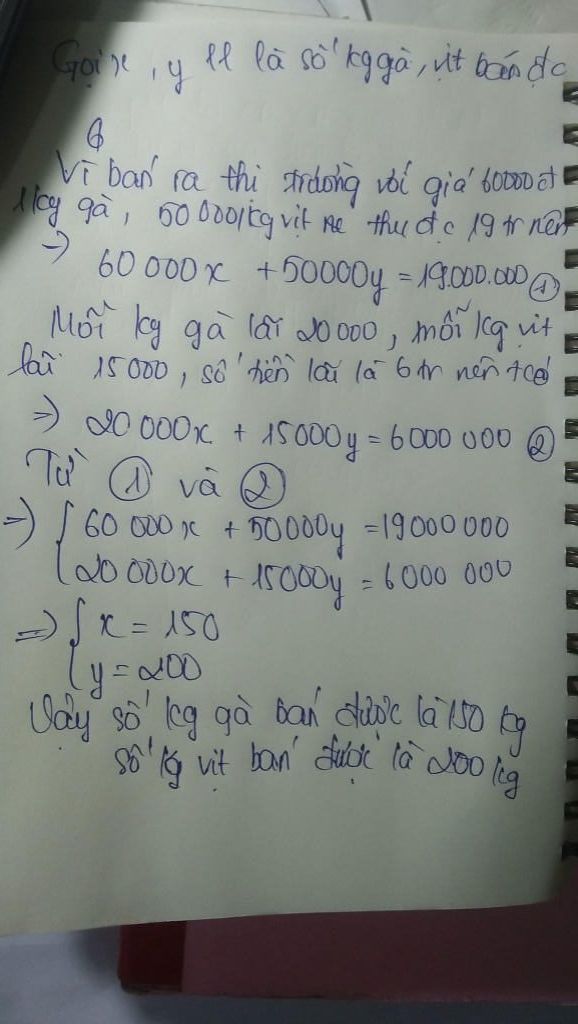 Gọi x, y ll là số kg gà, vịt bán đc
Vì bán ra thị trường với giá 60000đ
1kg gà, 50 000/kg vịt thu đc 19 tr nên
=> 60 000x + 50000y = 19.000.000 ①
Mỗi kg gà lãi 20 000, mỗi kg vịt
lãi 15 000, số tiền lãi là 6 tr nên
=> 20 000x + 15000y = 6000 000 ②
Từ ① và ②
=> { 60 000x + 50000y = 19000 000
20 000x + 15000y = 6000 000
=> { x = 150
y = 200
Vậy số kg gà bán được là 150 kg
số kg vịt bán được là 200 kg